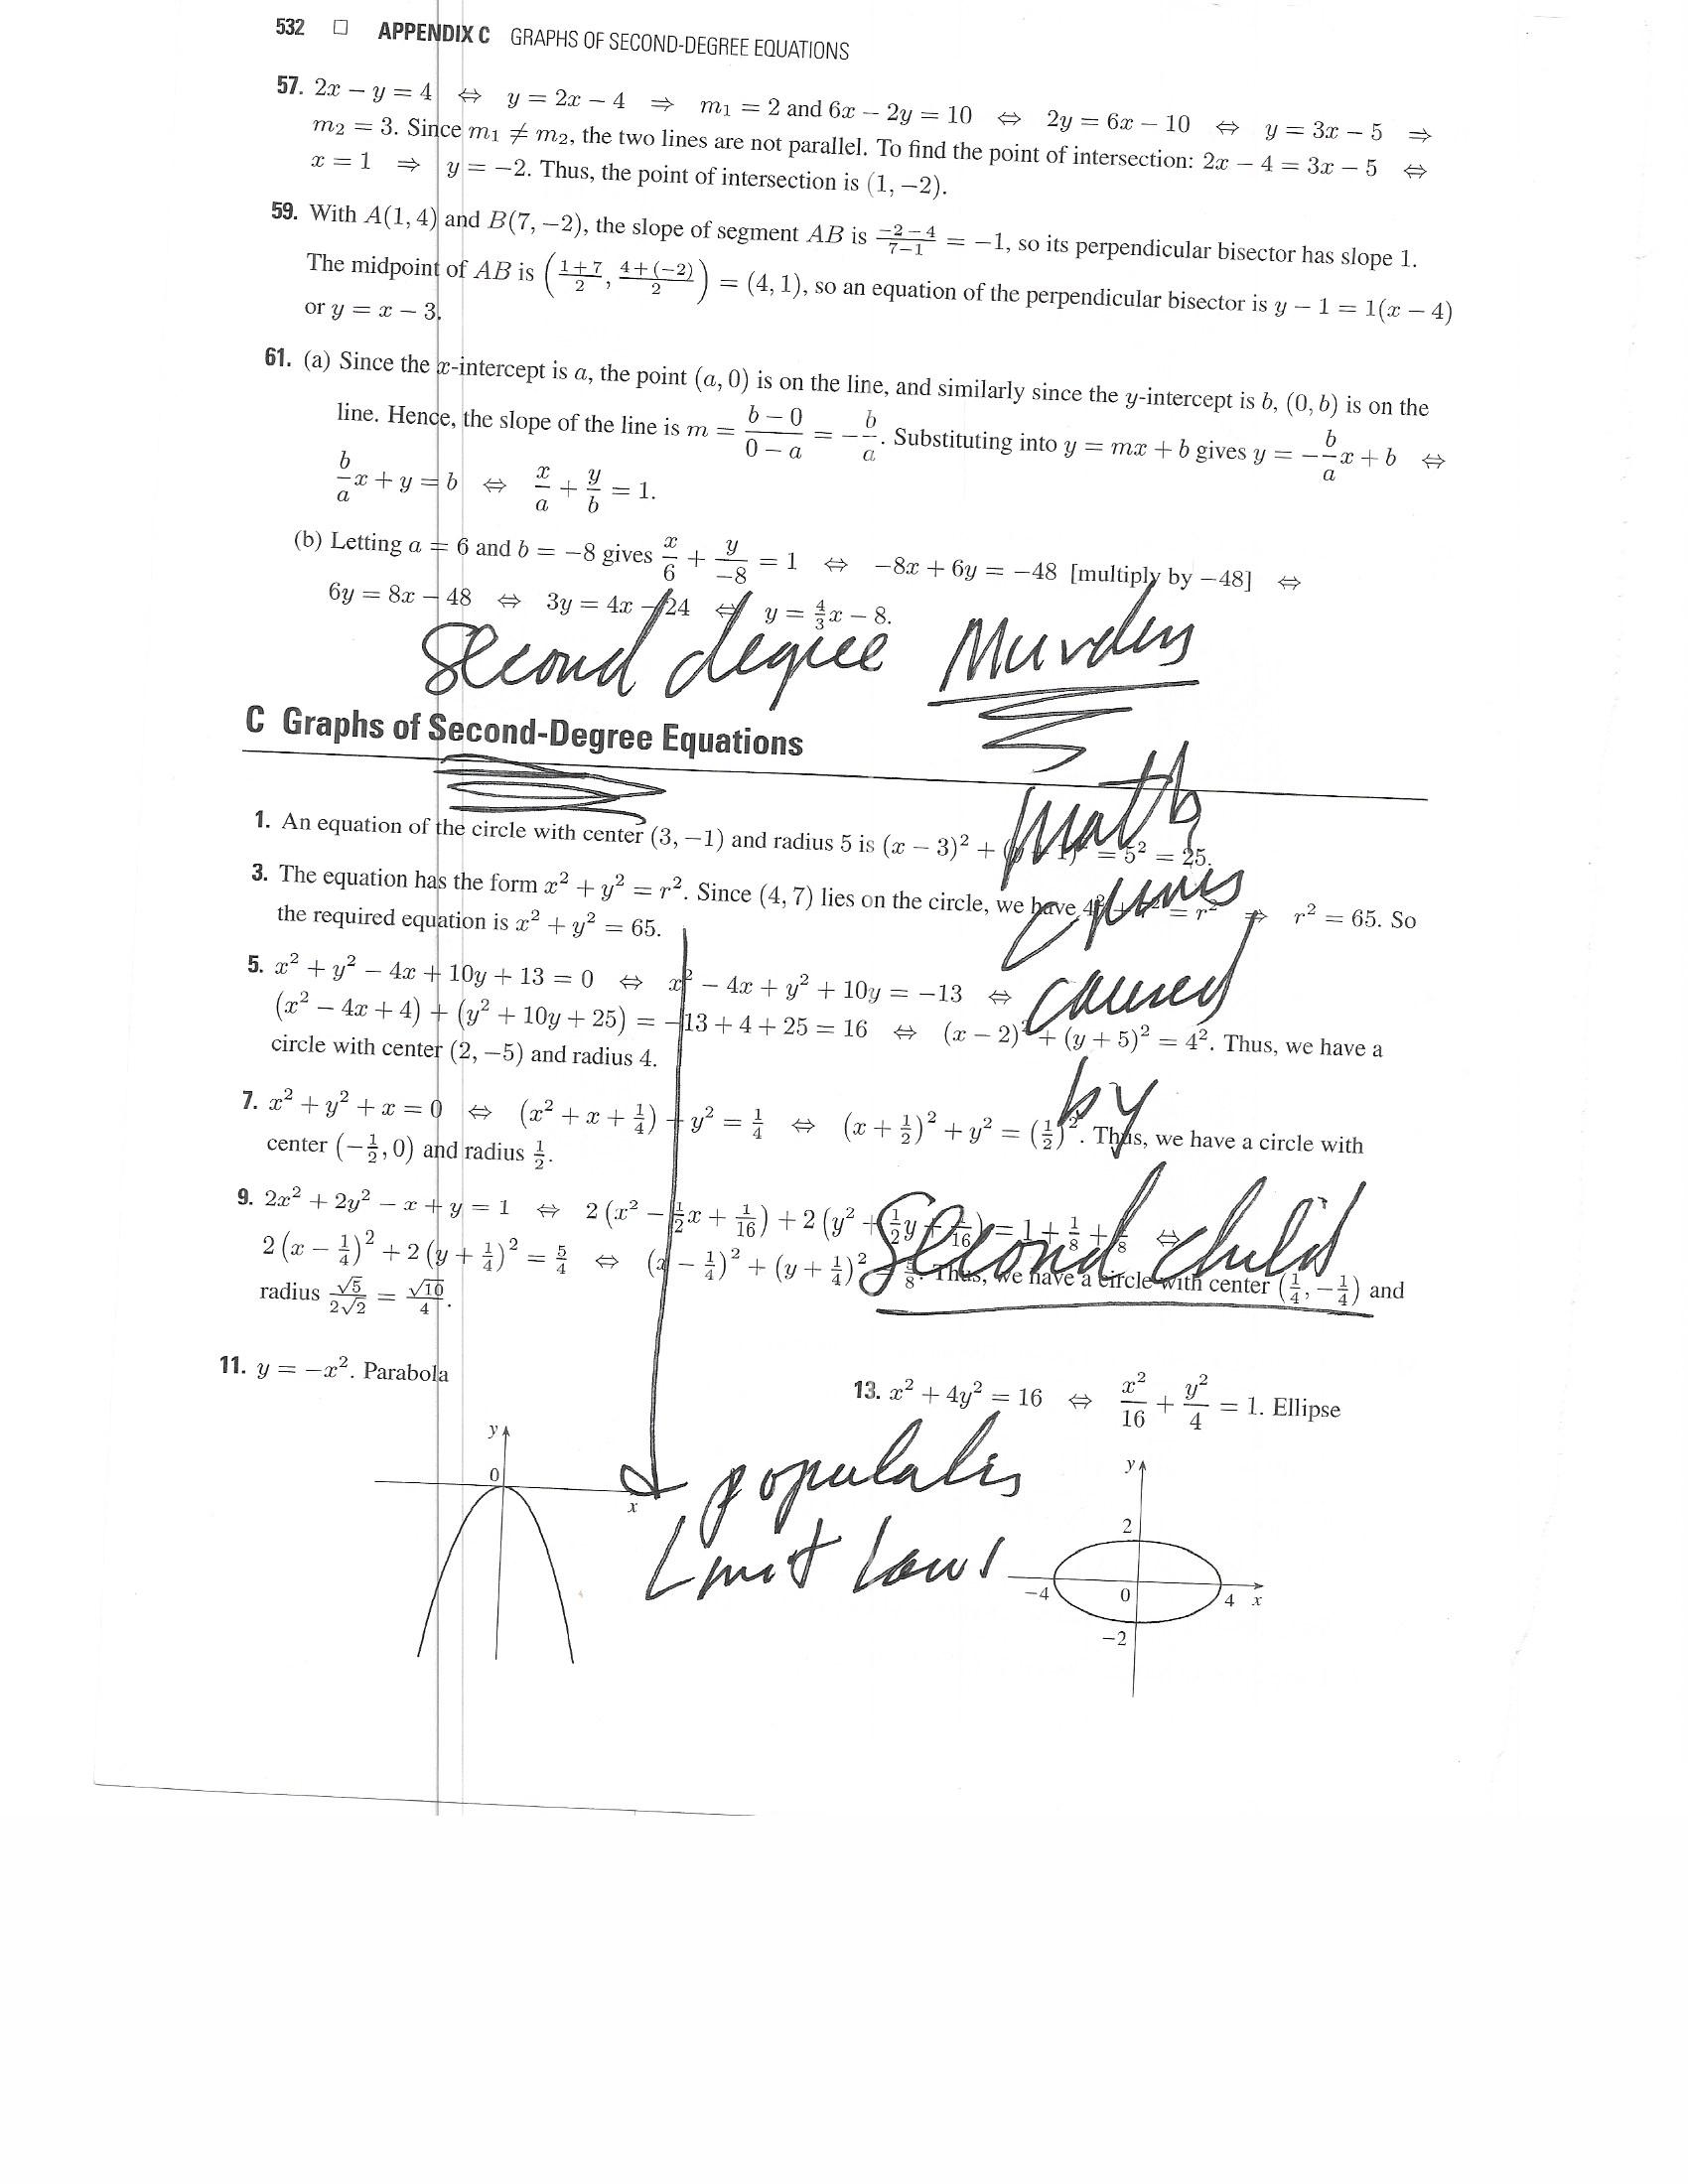 532 □ APPENDIX C GRAPHS OF SECOND-DEGREE EQUATIONS
57. 2x − y = 4 ⇔ y = 2x − 4 ⇒ m₁ = 2 and 6x − 2y = 10 ⇔ 2y = 6x − 10 ⇔ y = 3x − 5 ⇒
m₂ = 3. Since m₁ ≠ m₂, the two lines are not parallel. To find the point of intersection: 2x − 4 = 3x − 5 ⇔
x = 1 ⇒ y = −2. Thus, the point of intersection is (1, −2).
59. With A(1, 4) and B(7, −2), the slope of segment AB is (−2 − 4)/(7 − 1) = −1, so its perpendicular bisector has slope 1.
The midpoint of AB is ((1 + 7)/2, (4 + (−2))/2) = (4, 1), so an equation of the perpendicular bisector is y − 1 = 1(x − 4)
or y = x − 3.
61. (a) Since the x-intercept is a, the point (a, 0) is on the line, and similarly since the y-intercept is b, (0, b) is on the
line. Hence, the slope of the line is m = (b − 0)/(0 − a) = −b/a. Substituting into y = mx + b gives y = −(b/a)x + b ⇔
(b/a)x + y = b ⇔ x/a + y/b = 1.
(b) Letting a = 6 and b = −8 gives x/6 + y/−8 = 1 ⇔ −8x + 6y = −48 [multiply by −48] ⇔
6y = 8x − 48 ⇔ 3y = 4x − 24 ⇔ y = 4/3 x − 8.
Second degree Murders
C Graphs of Second-Degree Equations
math
1. An equation of the circle with center (3, −1) and radius 5 is (x − 3)² + (y + 1)² = 5² = 25.
3. The equation has the form x² + y² = r². Since (4, 7) lies on the circle, we have 4² + 7² = r² ⇒ r² = 65. So
the required equation is x² + y² = 65.
5. x² + y² − 4x + 10y + 13 = 0 ⇔ x² − 4x + y² + 10y = −13 ⇔
caused
(x² − 4x + 4) + (y² + 10y + 25) = −13 + 4 + 25 = 16 ⇔ (x − 2)² + (y + 5)² = 4². Thus, we have a
circle with center (2, −5) and radius 4.
by
7. x² + y² + x = 0 ⇔ (x² + x + 1/4) + y² = 1/4 ⇔ (x + 1/2)² + y² = (1/2)². Thus, we have a circle with
center (−1/2, 0) and radius 1/2.
9. 2x² + 2y² − x + y = 1 ⇔ 2(x² − 1/2 x + 1/16) + 2(y² + 1/2 y + 1/16) = 1 + 1/8 + 1/8 ⇔
second child
2(x − 1/4)² + 2(y + 1/4)² = 5/4 ⇔ (x − 1/4)² + (y + 1/4)² = 5/8. Thus, we have a circle with center (1/4, −1/4) and
radius √5/2√2 = √10/4.
11. y = −x². Parabola
13. x² + 4y² = 16 ⇔ x²/16 + y²/4 = 1. Ellipse
y
0
x
Limit laws
y
2
−4 0 4 x
−2